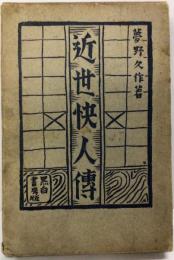 夢野久作著
近世快人傳
黒白
書房版